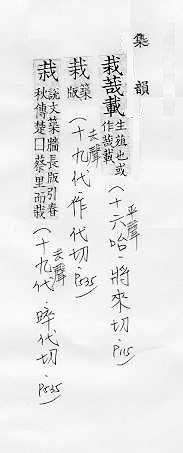 集韻
栽哉載 生殖也或
作哉載 (平聲十六咍·將來切·P115
栽 築
版 (去聲十九代·作代切·P535
栽 說文築牆長版引春
秋傳楚囗蔡里而栽 (去聲十九代·昨代切·P535